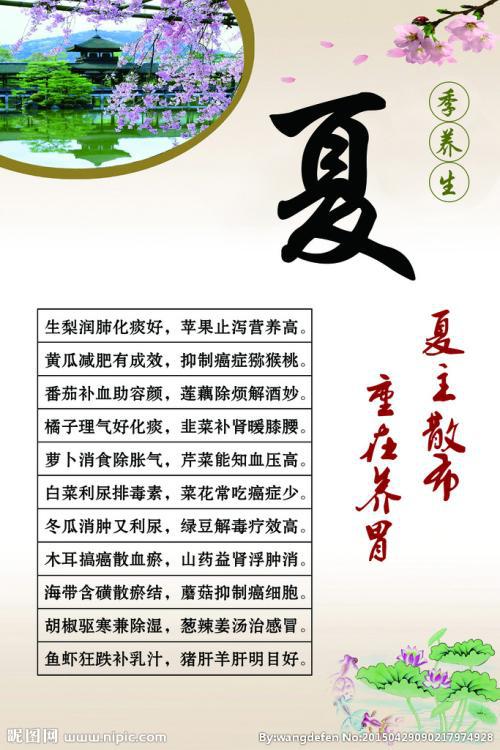 夏
季养生
夏主散布
重在养胃
生梨润肺化痰好，苹果止泻营养高。
黄瓜减肥有成效，抑制癌症猕猴桃。
番茄补血助容颜，莲藕除烦解酒妙。
橘子理气好化痰，韭菜补肾暖膝腰。
萝卜消食除胀气，芹菜能知血压高。
白菜利尿排毒素，菜花常吃癌症少。
冬瓜消肿又利尿，绿豆解毒疗效高。
木耳搞癌散血瘀，山药益肾浮肿消。
海带含磺散瘀结，蘑菇抑制癌细胞。
胡椒驱寒兼除湿，葱辣姜汤治感冒。
鱼虾狂跌补乳汁，猪肝羊肝明目好。
昵图网 www.nipic.com
By:wangdefen No:20150429090217974928